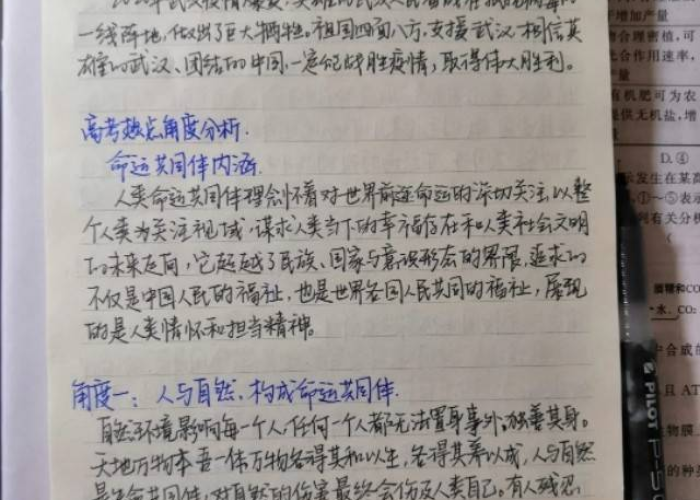 一线阵地,做出了巨大牺牲。祖国四面八方,支援武汉,相信英
雄的武汉、团结的中国,一定能战胜疫情,取得伟大胜利。
高考热点角度分析.
命运共同体内涵.
人类命运共同体理念怀着对世界前途命运的深切关注,以整
个人类为关注视域,谋求人类当下的幸福存在和人类社会文明
的未来走向,它超越了民族、国家与意识形态的界限,追求的
不仅是中国人民的福祉,也是世界各国人民共同的福祉,展现
的是人类情怀和担当精神。
角度一:人与自然,构成命运共同体.
自然环境影响每一个人,任何一个人都无法置身事外,独善其身。
天地万物本吾一体,万物各得其和以生,各得其养以成,人与自然
是生命共同体,对自然的伤害最终会伤及人类自己。有人
增加产量
合理密植,可
光合作用速率,
量
有机肥可为农
提供无机盐,增
D.④
发生在某高
①~⑤表示
列有关分析
(
糖和CO₂
水、CO₂
中合成
且AT
物膜
的种
PILOT P-5